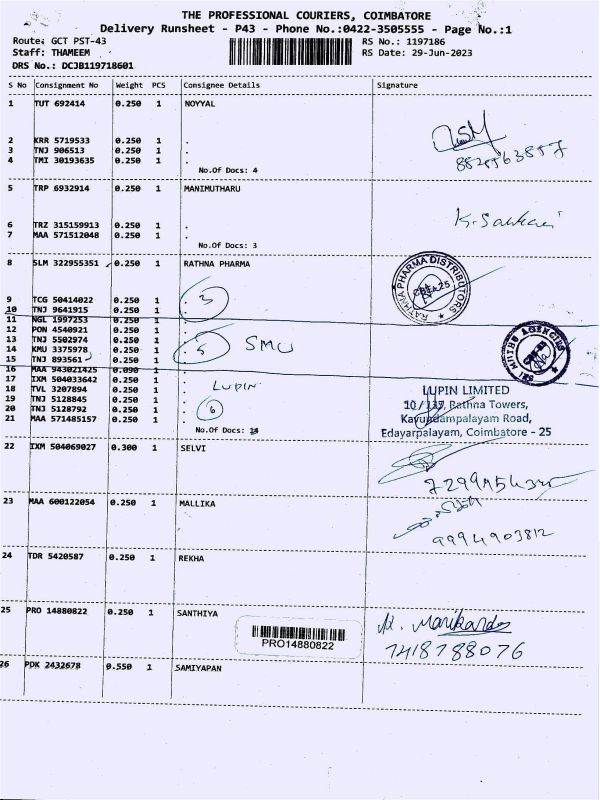 THE PROFESSIONAL COURIERS, COIMBATORE
Delivery Runsheet - P43 - Phone No.:0422-3505555 - Page No.:1
Route: GCT PST-43 RS No.: 1197186
Staff: THAMEEM RS Date: 29-Jun-2023
DRS No.: DCJB119718601
S No Consignment No Weight PCS Consignee Details Signature
1 TUT 692414 0.250 1 NOYYAL
2 KRR 5719533 0.250 1 .
3 TNJ 906513 0.250 1 .
4 TMI 30193635 0.250 1 .
No.Of Docs: 4
5 TRP 6932914 0.250 1 MANIMUTHARU
6 TRZ 315159913 0.250 1 .
7 MAA 571512048 0.250 1 .
No.Of Docs: 3
8 SLM 322955351 0.250 1 RATHNA PHARMA
RATHNA PHARMA DISTRIBUTORS
9 TCG 50414022 0.250 1 . 3
10 TNJ 9641915 0.250 1 .
11 NGL 1997253 0.250 1 .
12 PON 4540921 0.250 1 .
13 TNJ 5502974 0.250 1 .
14 KMU 3375978 0.250 1 . 5 SMU
15 TNJ 893561 0.250 1 .
16 MAA 943021425 0.090 1 .
17 IXM 504033642 0.250 1 .
18 TVL 3207894 0.250 1 . LUPIN
19 TNJ 5128845 0.250 1 .
20 TNJ 5128792 0.250 1 . 6
21 MAA 571485157 0.250 1 .
No.Of Docs: 14
LUPIN LIMITED
Rathna Towers,
Kavundampalayam Road,
Edayarpalayam, Coimbatore - 25
22 IXM 504069027 0.300 1 SELVI
23 MAA 600122054 0.250 1 MALLIKA
9994903812
24 TDR 5420587 0.250 1 REKHA
25 PRO 14880822 0.250 1 SANTHIYA
PRO14880822
7418788076
26 PDK 2432678 0.550 1 SAMIYAPAN